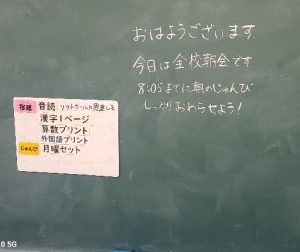 おはようございます
今日は全校朝会です
8:05までに朝のじゅんび
しっかりおわらせよう!
宿題 音読
漢字1ページ
算数プリント
外国語プリント
じゅんび 月曜セット
5G